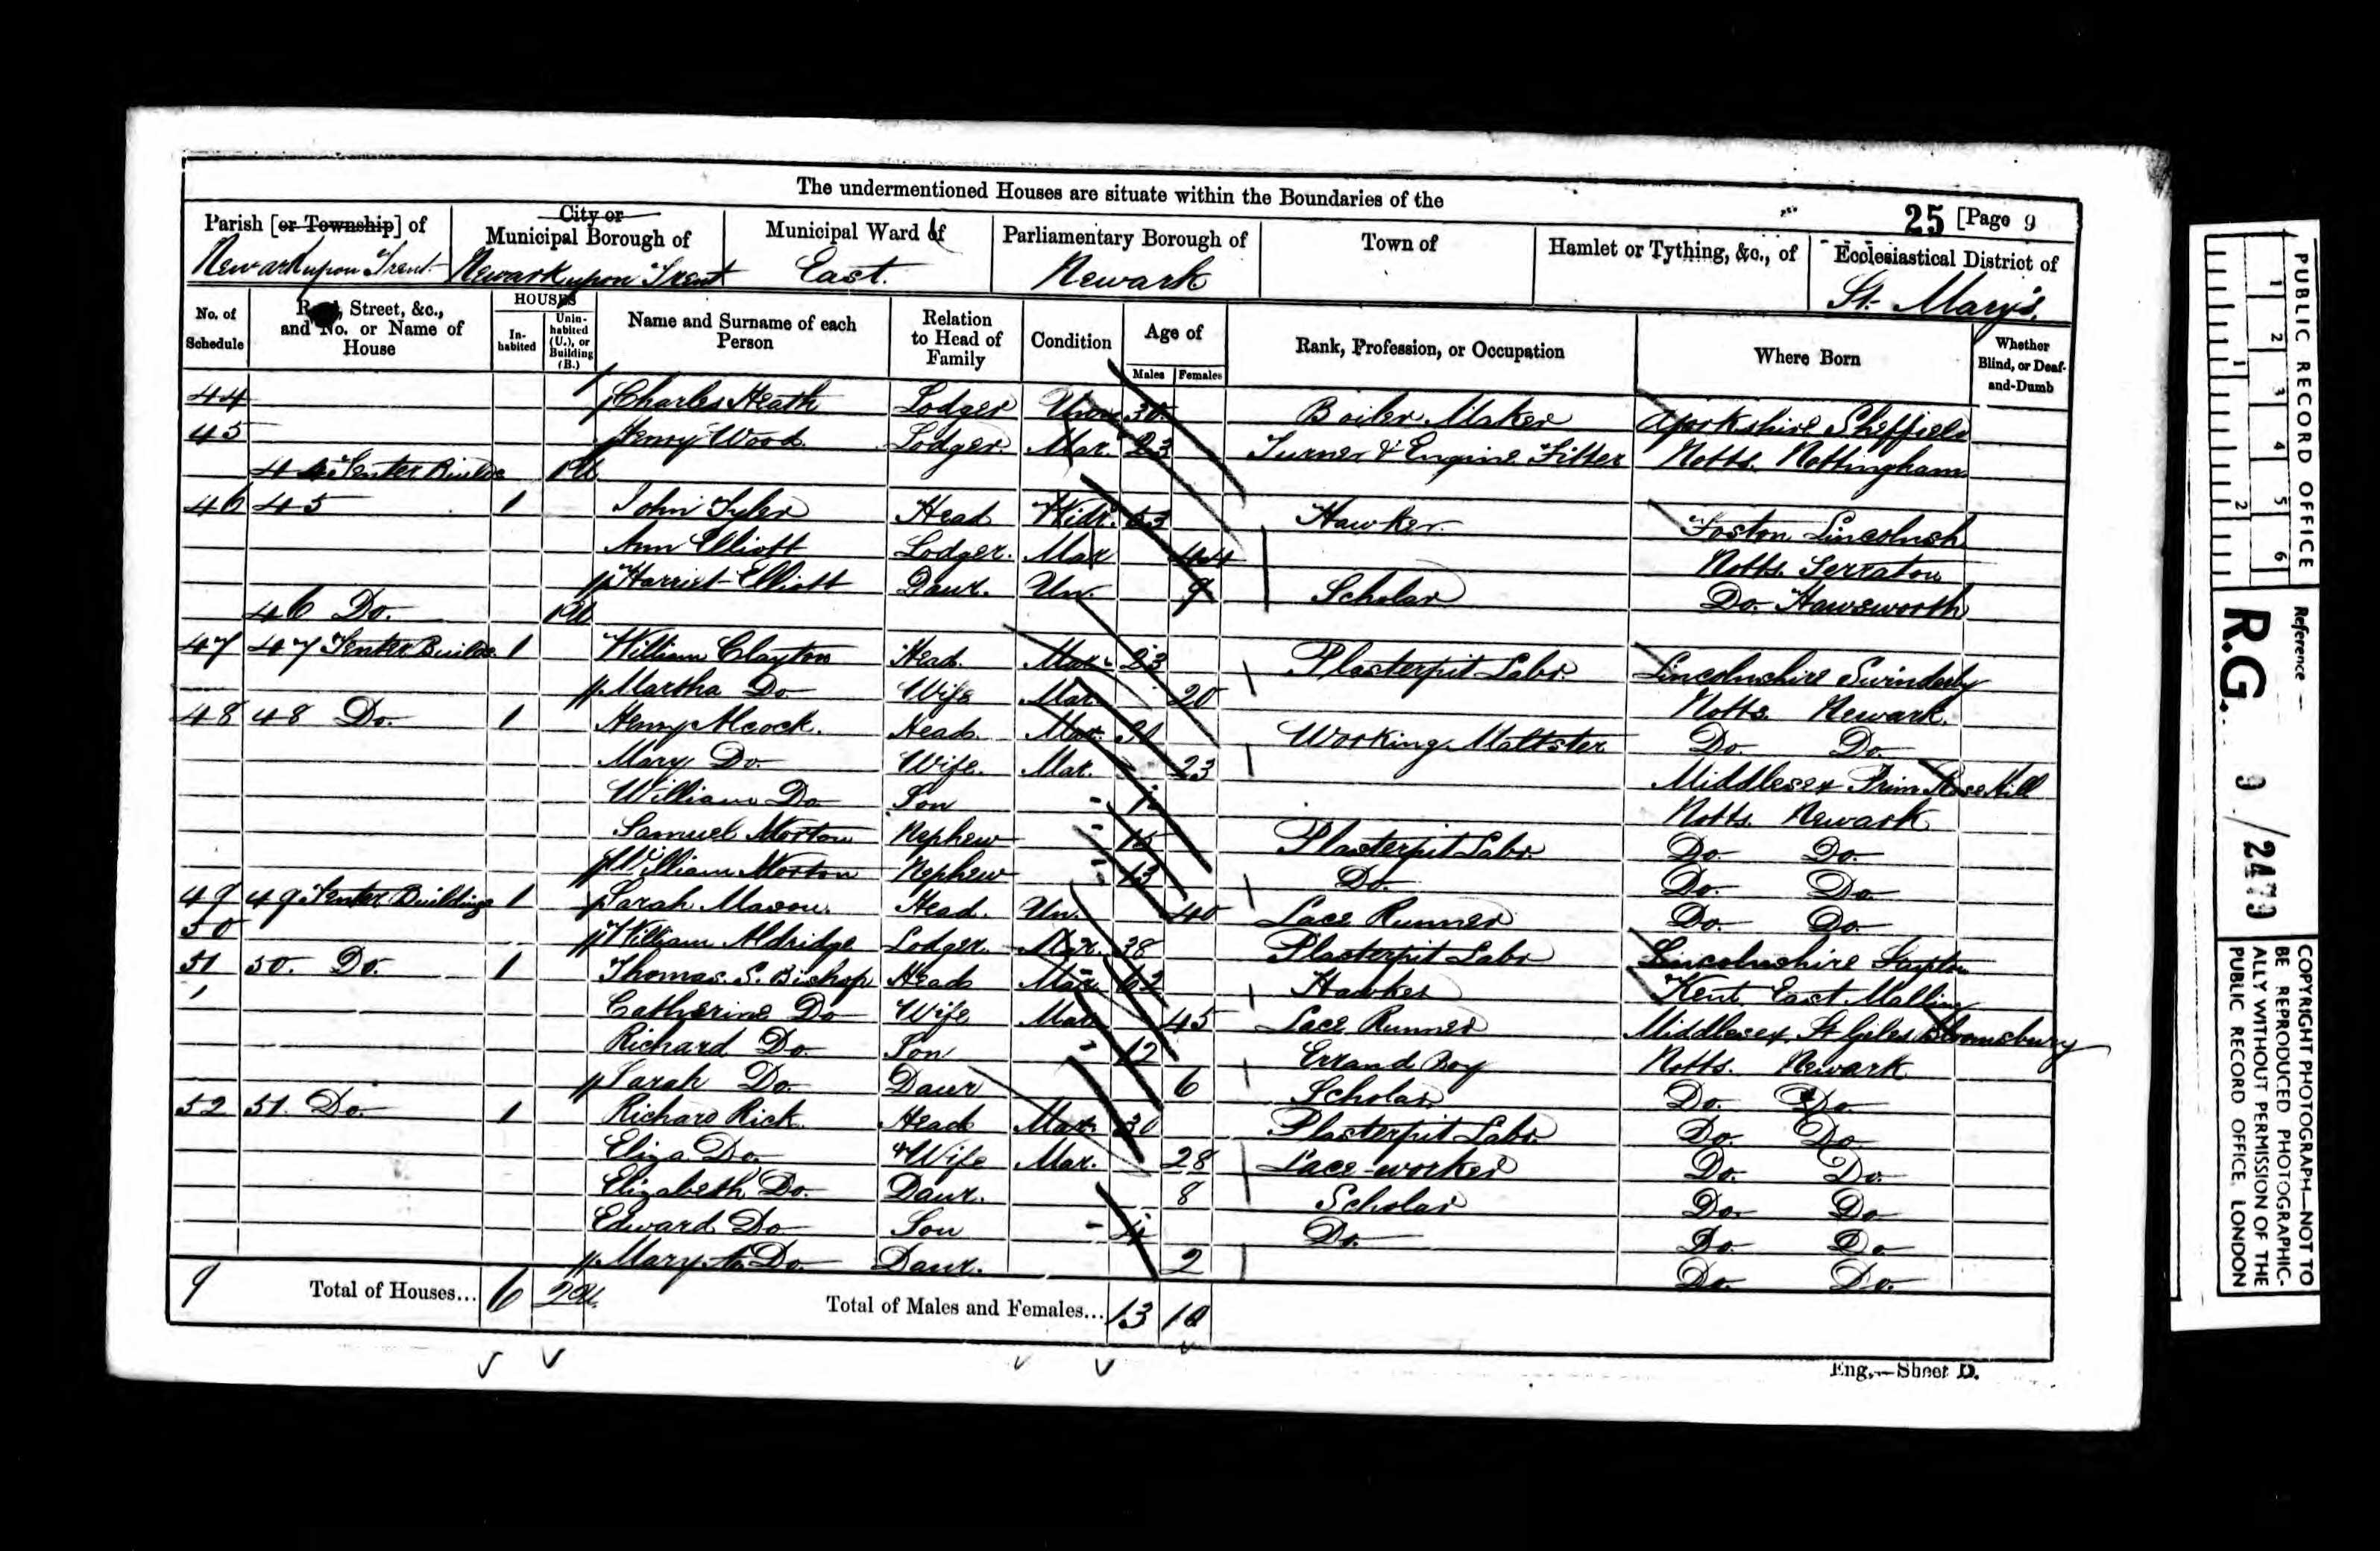 The undermentioned Houses are situate within the Boundaries of the
25 [Page 9
Parish [or Township] of
Newark upon Trent
City or Municipal Borough of
Newark upon Trent
Municipal Ward of
East.
Parliamentary Borough of
Newark
Town of
Hamlet or Tything, &c., of
Ecclesiastical District of
St. Mary's.
No. of Schedule
Street, &c., and No. or Name of House
HOUSES
Inhabited
Uninhabited (U.), or Building (B.)
Name and Surname of each Person
Relation to Head of Family
Condition
Age of
Males Females
Rank, Profession, or Occupation
Where Born
Whether Blind, or Deaf-and-Dumb
44 Charles Heath Lodger 30 Boiler Maker Yorkshire Sheffield
45 Henry Wood Lodger Mar. 23 Turner & Engine Fitter Notts. Nottingham
44 Tenter Builds 1U
46 45 1 John Tyler Head Widr. 63 Hawker Foston Lincolnsh
Ann Elliott Lodger. Mar 44 Notts.
Harriet Elliott Daur. Un. 9 Scholar Do. Hawsworth
46 Do. 1U
47 47 Tenter Builds. 1 William Clayton Head. Mar. 23 Plasterpit Labr. Lincolnshire Swinderby
Martha Do Wife Mar. 20 Notts. Newark.
48 48 Do. 1 Henry Alcock. Head. Mar. Working Maltster Do. Do.
Mary Do. Wife. Mar. 23 Middlesex Prim Rose Hill
William Do Son Notts. Newark
Samuel Morton Nephew 15 Plasterpit Labr. Do. Do.
William Morton Nephew 13 Do. Do. Do.
49 49 Tenter Buildings 1 Sarah Mason. Head. Un. 40 Lace Runner Do. Do.
50 William Aldridge Lodger. Mar. 38 Plasterpit Labr Lincolnshire
51 50. Do. 1 Thomas. S. Bishop Head Mar. 62 Hawker Kent East Malling
Catherine Do Wife Mar. 45 Lace Runner Middlesex St Giles Bloomsbury
Richard Do. Son 12 Errand Boy Notts. Newark
Sarah Do. Daur 6 Scholar Do. Do.
52 51. Do. 1 Richard Rick Head Mar. 30 Plasterpit Labr. Do. Do
Eliza Do. Wife Mar. 28 Lace-worker Do. Do.
Elizabeth Do. Daur. 8 Scholar Do. Do.
Edward Do Son Do. Do. Do
Mary A. Do. Daur. 2 Do. Do.
9 Total of Houses... 6 2U. Total of Males and Females... 13 10
Eng.—Sheet D.
PUBLIC RECORD OFFICE
1 2 3 4 5 6
1 2
Reference —
R.G. 9/2479
COPYRIGHT PHOTOGRAPH—NOT TO
BE REPRODUCED PHOTOGRAPHIC-
ALLY WITHOUT PERMISSION OF THE
PUBLIC RECORD OFFICE, LONDON